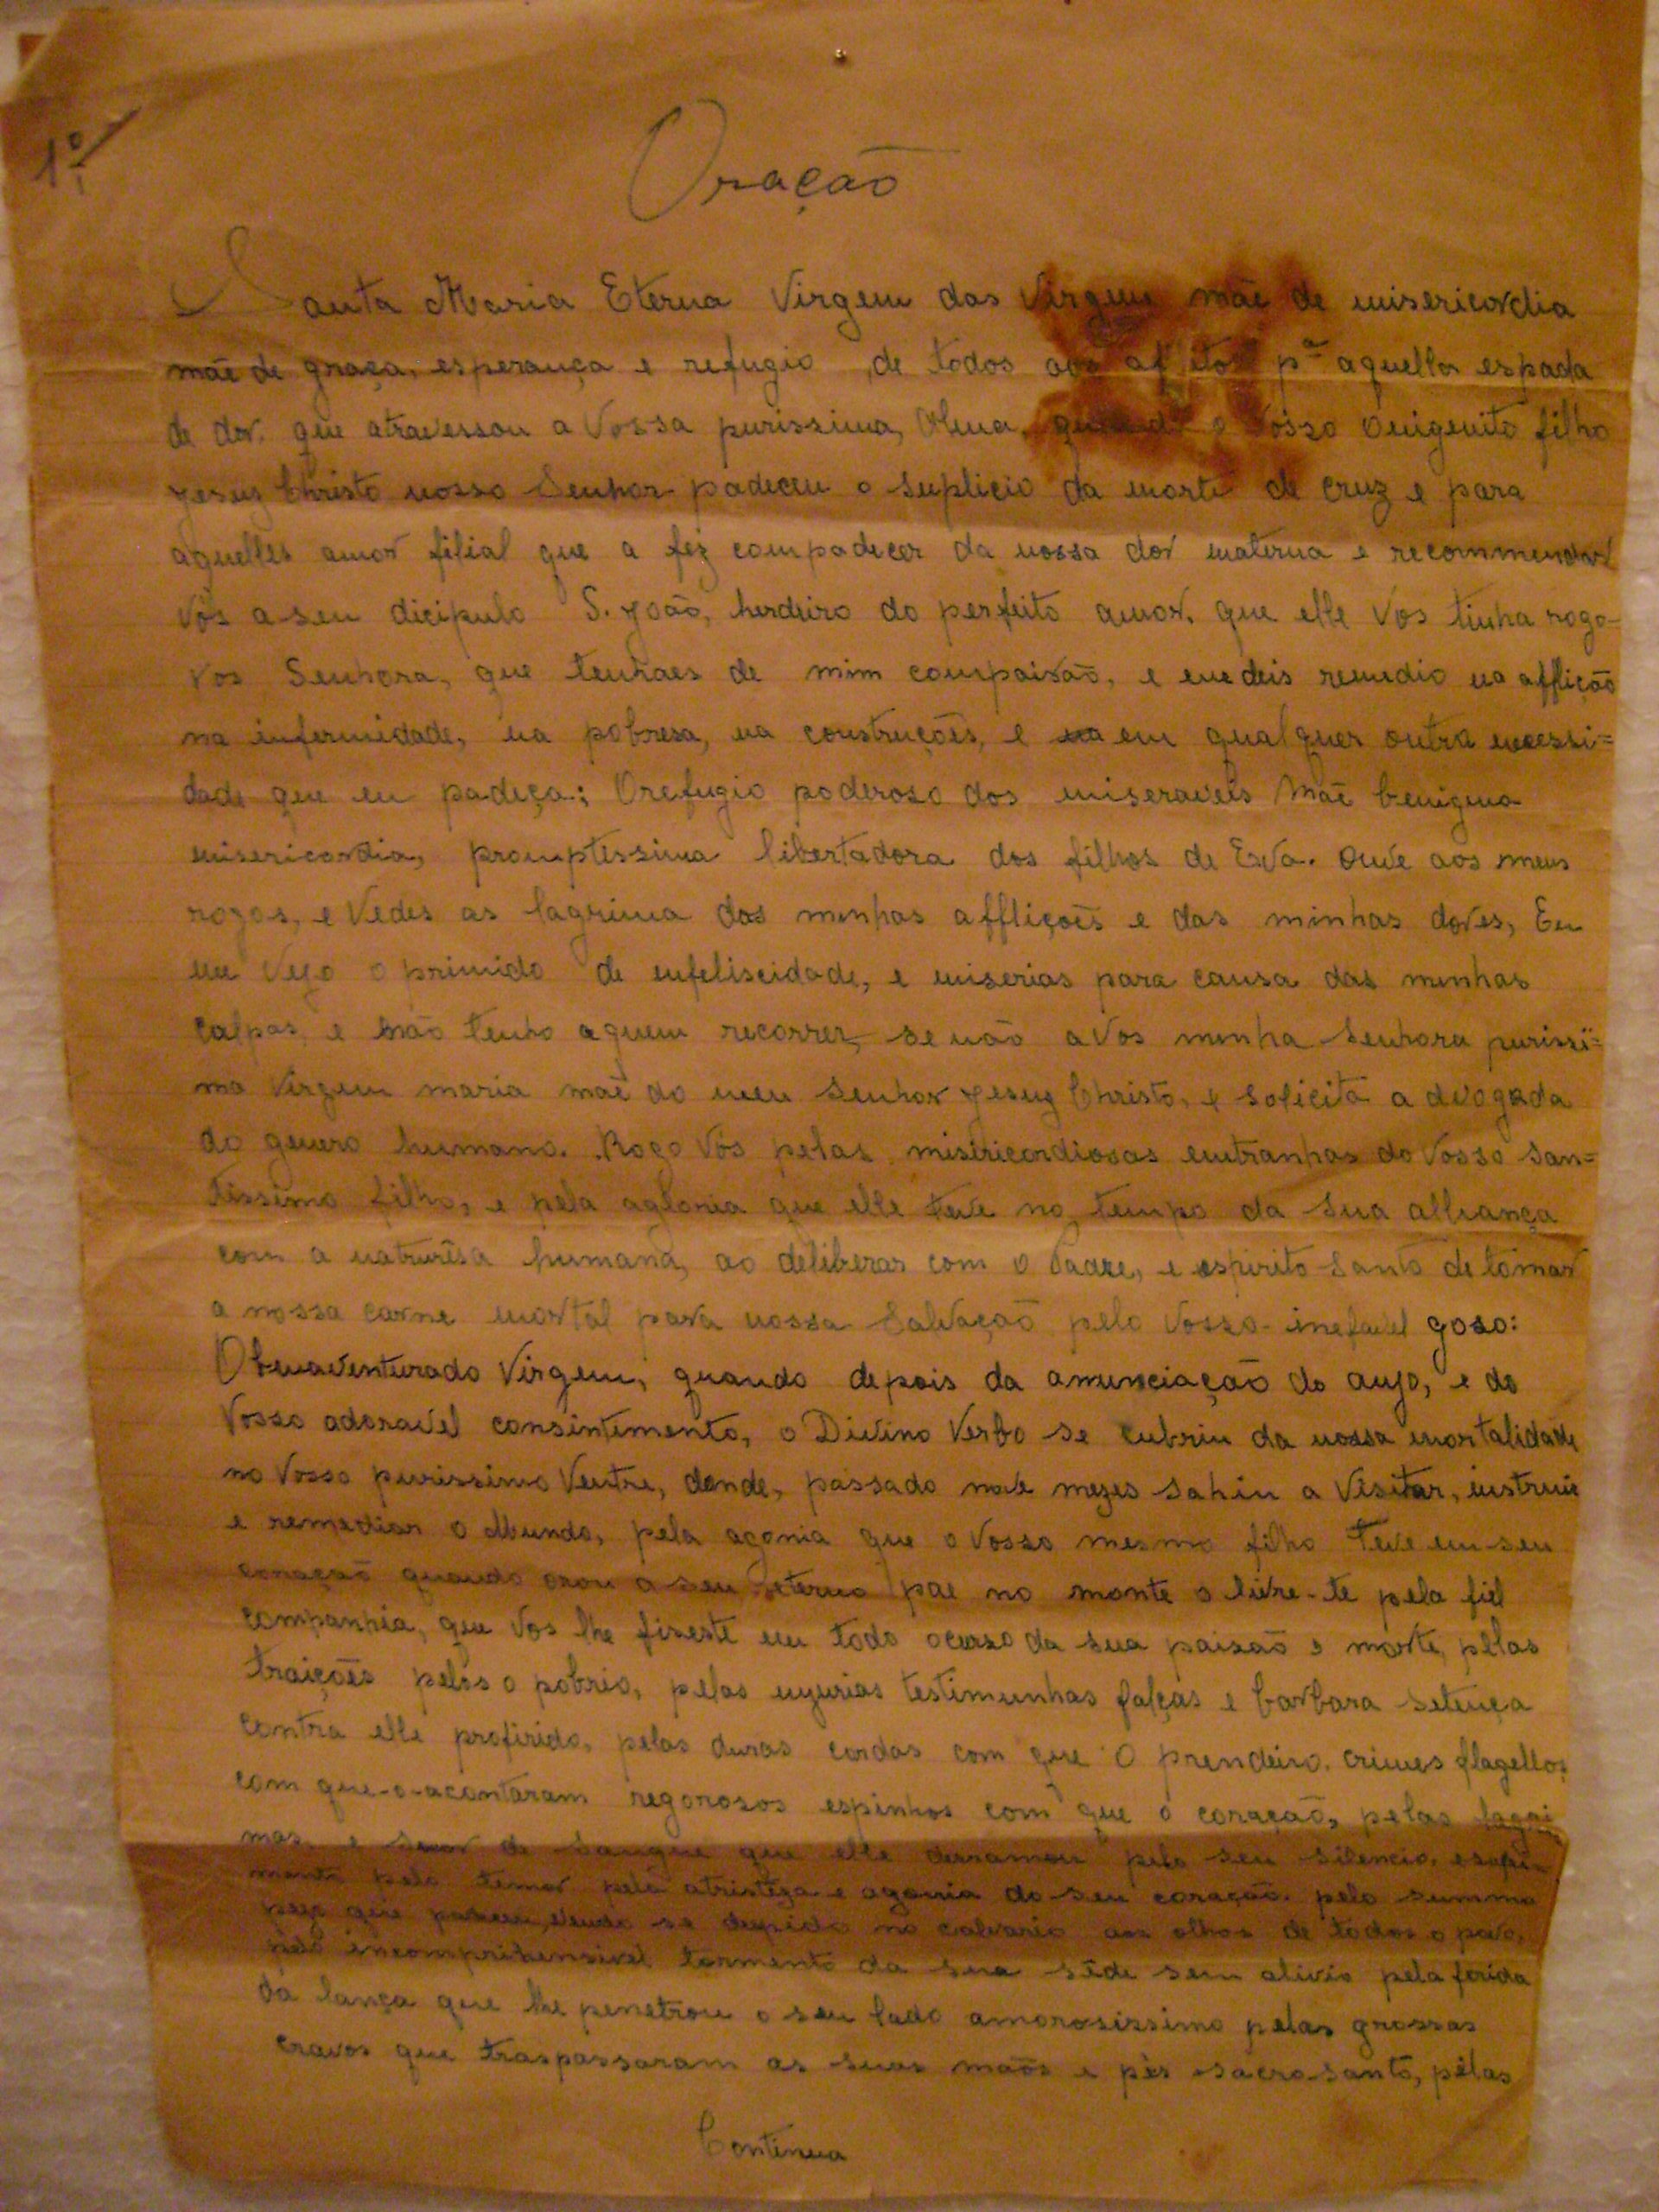 1º
Oração
Santa Maria Eterna Virgem das Virgem mãe de misericordia
mãe de graça, esperança e refugio, de todos aos aflitos pª aquella espada
de dor. que atravessou a Vossa purissima, Alma, quando o Vosso Unigenito filho
Jesus Christo nosso Senhor padeceu o suplicio da morte de cruz e para
aquelles amor filial que a fez compadecer da vossa dor materna e recommendar
Vós a seu dicipulo S. João, herdeiro do perfeito amor. que elle Vos tinha rogo-
Vos Senhora, que tenhaes de mim compaixão, e me deis remedio na afflição
na infermidade, na pobresa, na construções, e na em qualquer outra necessi=
dade que eu padeça: O refugio poderoso dos miseraveis Mãe benigna
misericordia, promptessima libertadora dos filhos de Eva. Ouve aos meus
rogos, e Vedes as lagrima das minhas afflições e das minhas dores, Eu
me Vejo oprimido de enfeliscidade, e miserias para causa das minhas
calpas, e não tenho aquem recorrer, se não a Vos minha Senhora purissi=
ma Virgem maria mãe do meu Senhor Jesus Christo, e solicita a dvogada
do genero humano. Rogo Vós pelas misiricordiosas emtranhas do Vosso San=
tissimo filho, e pela agloria que elle teve no tempo da sua alliança
com a naturêsa humana, ao deliberar com o Padre, e espirito Santo de tomar
a nossa carne mortal para nossa Salvação pelo Vosso inefavel goso:
O benaventurado Virgem, quando depois da anunciação do anjo, e do
Vosso adoravel consintimento, o Divino Verbo se cubriu da nossa mortalidade
no Vosso purissimo Ventre, donde, passado nove mezes sahiu a Visitar, instruir
e remediar o Mundo, pela agonia que o Vosso mesmo filho teve em seu
coração quando orou a seu eterno pae no monte o livre-te pela fiel
companhia, que Vos lhe fizeste em todo ocurso da sua paixão e morte, pelas
traições pelos o pobrio, pelas injurias testimunhas falças e barbara setença
contra elle profirida, pelas duras cordas com que O prendeiro. crimes flagellos
com que-o-acontaram regorosos espinhos com que o coração, pelas lagri
mas e suor de sangue que elle derramou pelo seu silencio, e
mento pelo temor pela atristeza e agonia do seu coração. pelo summo
que Vendo se despido no calvario aos olhos de todos o povo,
pelo incomprihensivel tormento da sua sêde sem alivio pela ferida
da lança que lhe penetrou o seu lado amorosissimo pelas grossas
cravos que traspassaram as suas mãos e pés sacro-santo, pêlas
Continua